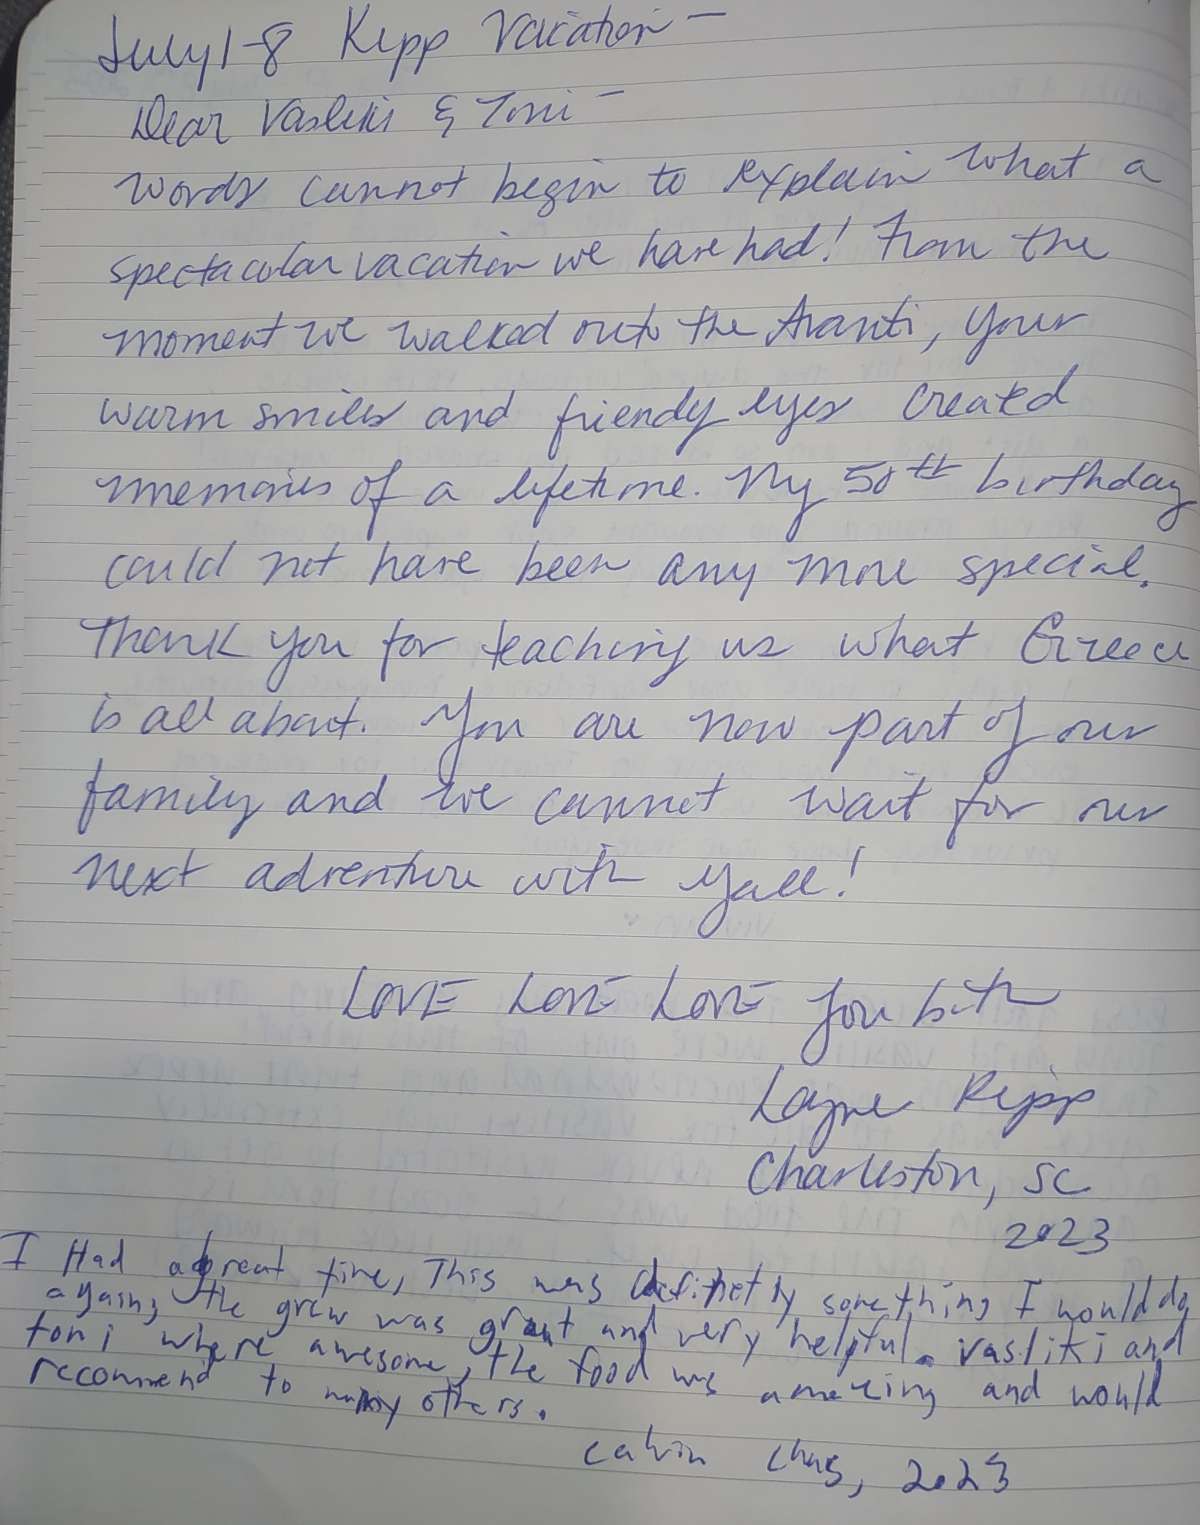 July 1-8 Kipp Vacation -
Dear Vasliki & Toni -
Words cannot begin to explain what a
spectacular vacation we have had! From the
moment we walked onto the Avanti, your
warm smiles and friendly eyes created
memories of a lifetime. My 50th birthday
could not have been any more special.
Thank you for teaching us what Greece
is all about. You are now part of our
family and we cannot wait for our
next adventure with y'all!
LOVE LOVE LOVE you both
Layne Kipp
Charleston, SC
2023
I Had a great time, This was definetly something I would do
again, the grew was great and very helpful. Vasliki and
toni where awesome, the food was amazing and would
recommend to many others.
Calvin 2023